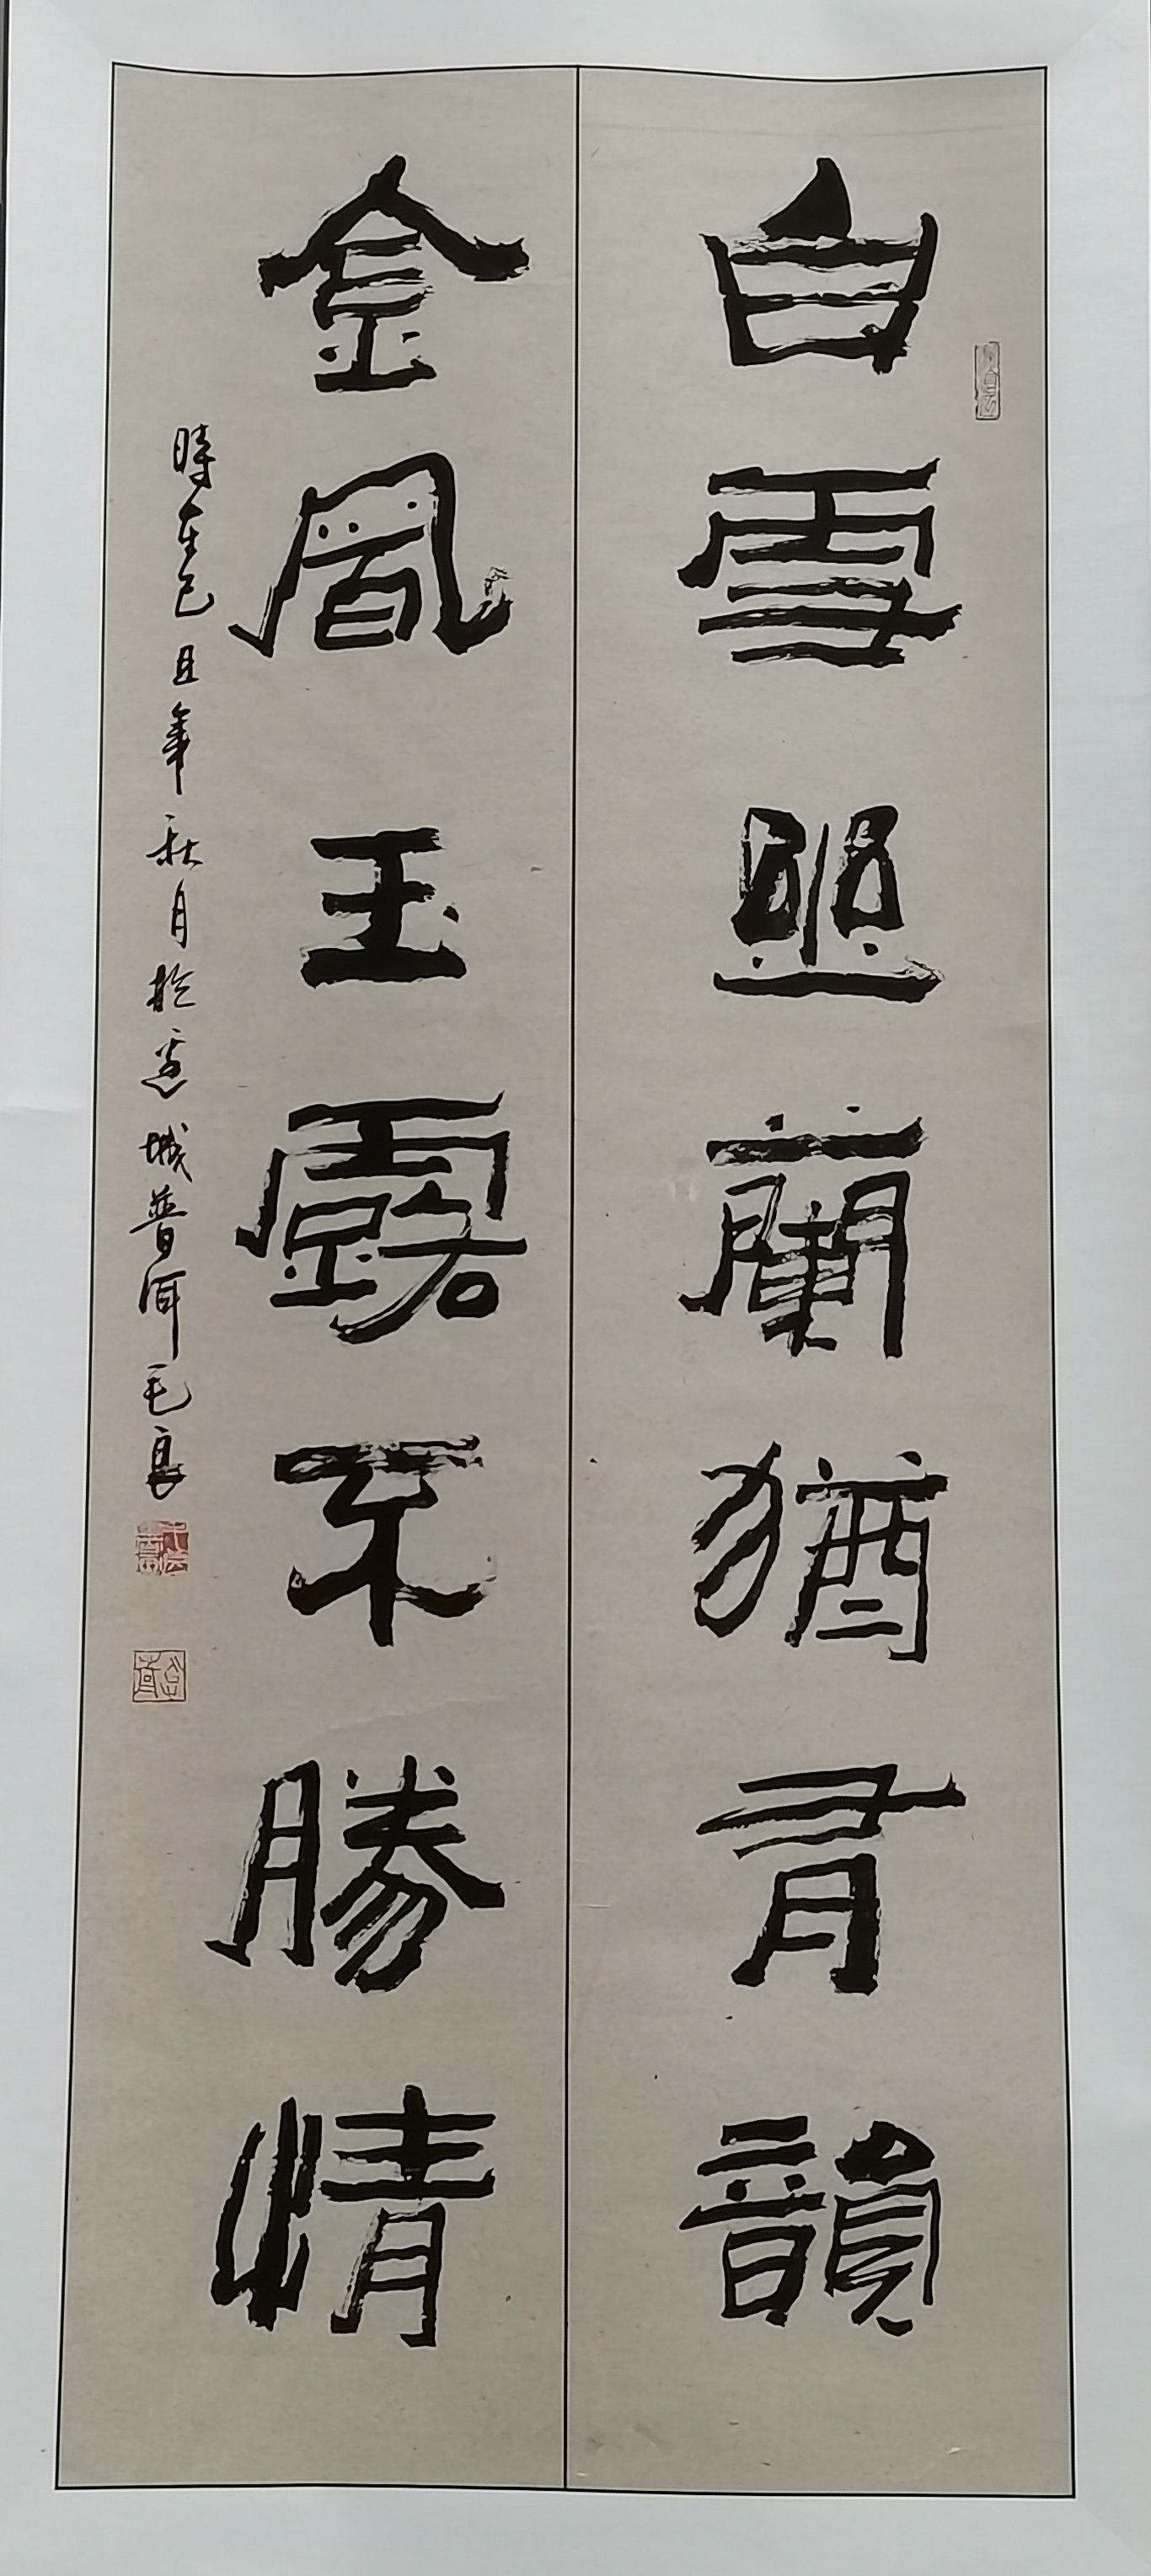 白雪幽蘭猶有韻
金風玉露不勝情
時在己丑年秋月於邊城普洱毛良